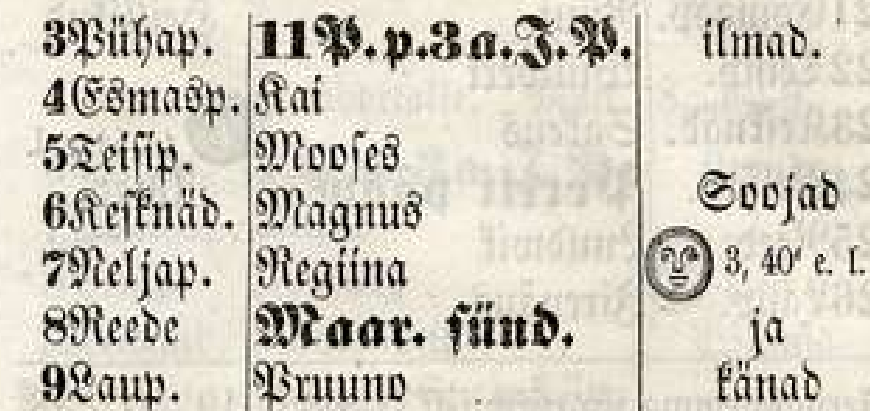 3 Pühap. 11 P. p. 3 a. J. P. ilmad.
4 Esmasp. Kai
5 Teisip. Mooses
6 Kesknäd. Magnus Soojad
7 Neljap. Regiina 3, 40' e. l.
8 Reede Maar. sünd. ja
9 Laup. Pruuno känad